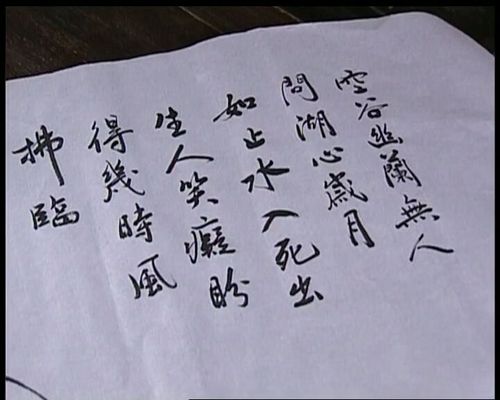 空谷幽蘭無人
問湖心歲月
如止水入死出
生人笑癡盼
得幾時風
拂臨